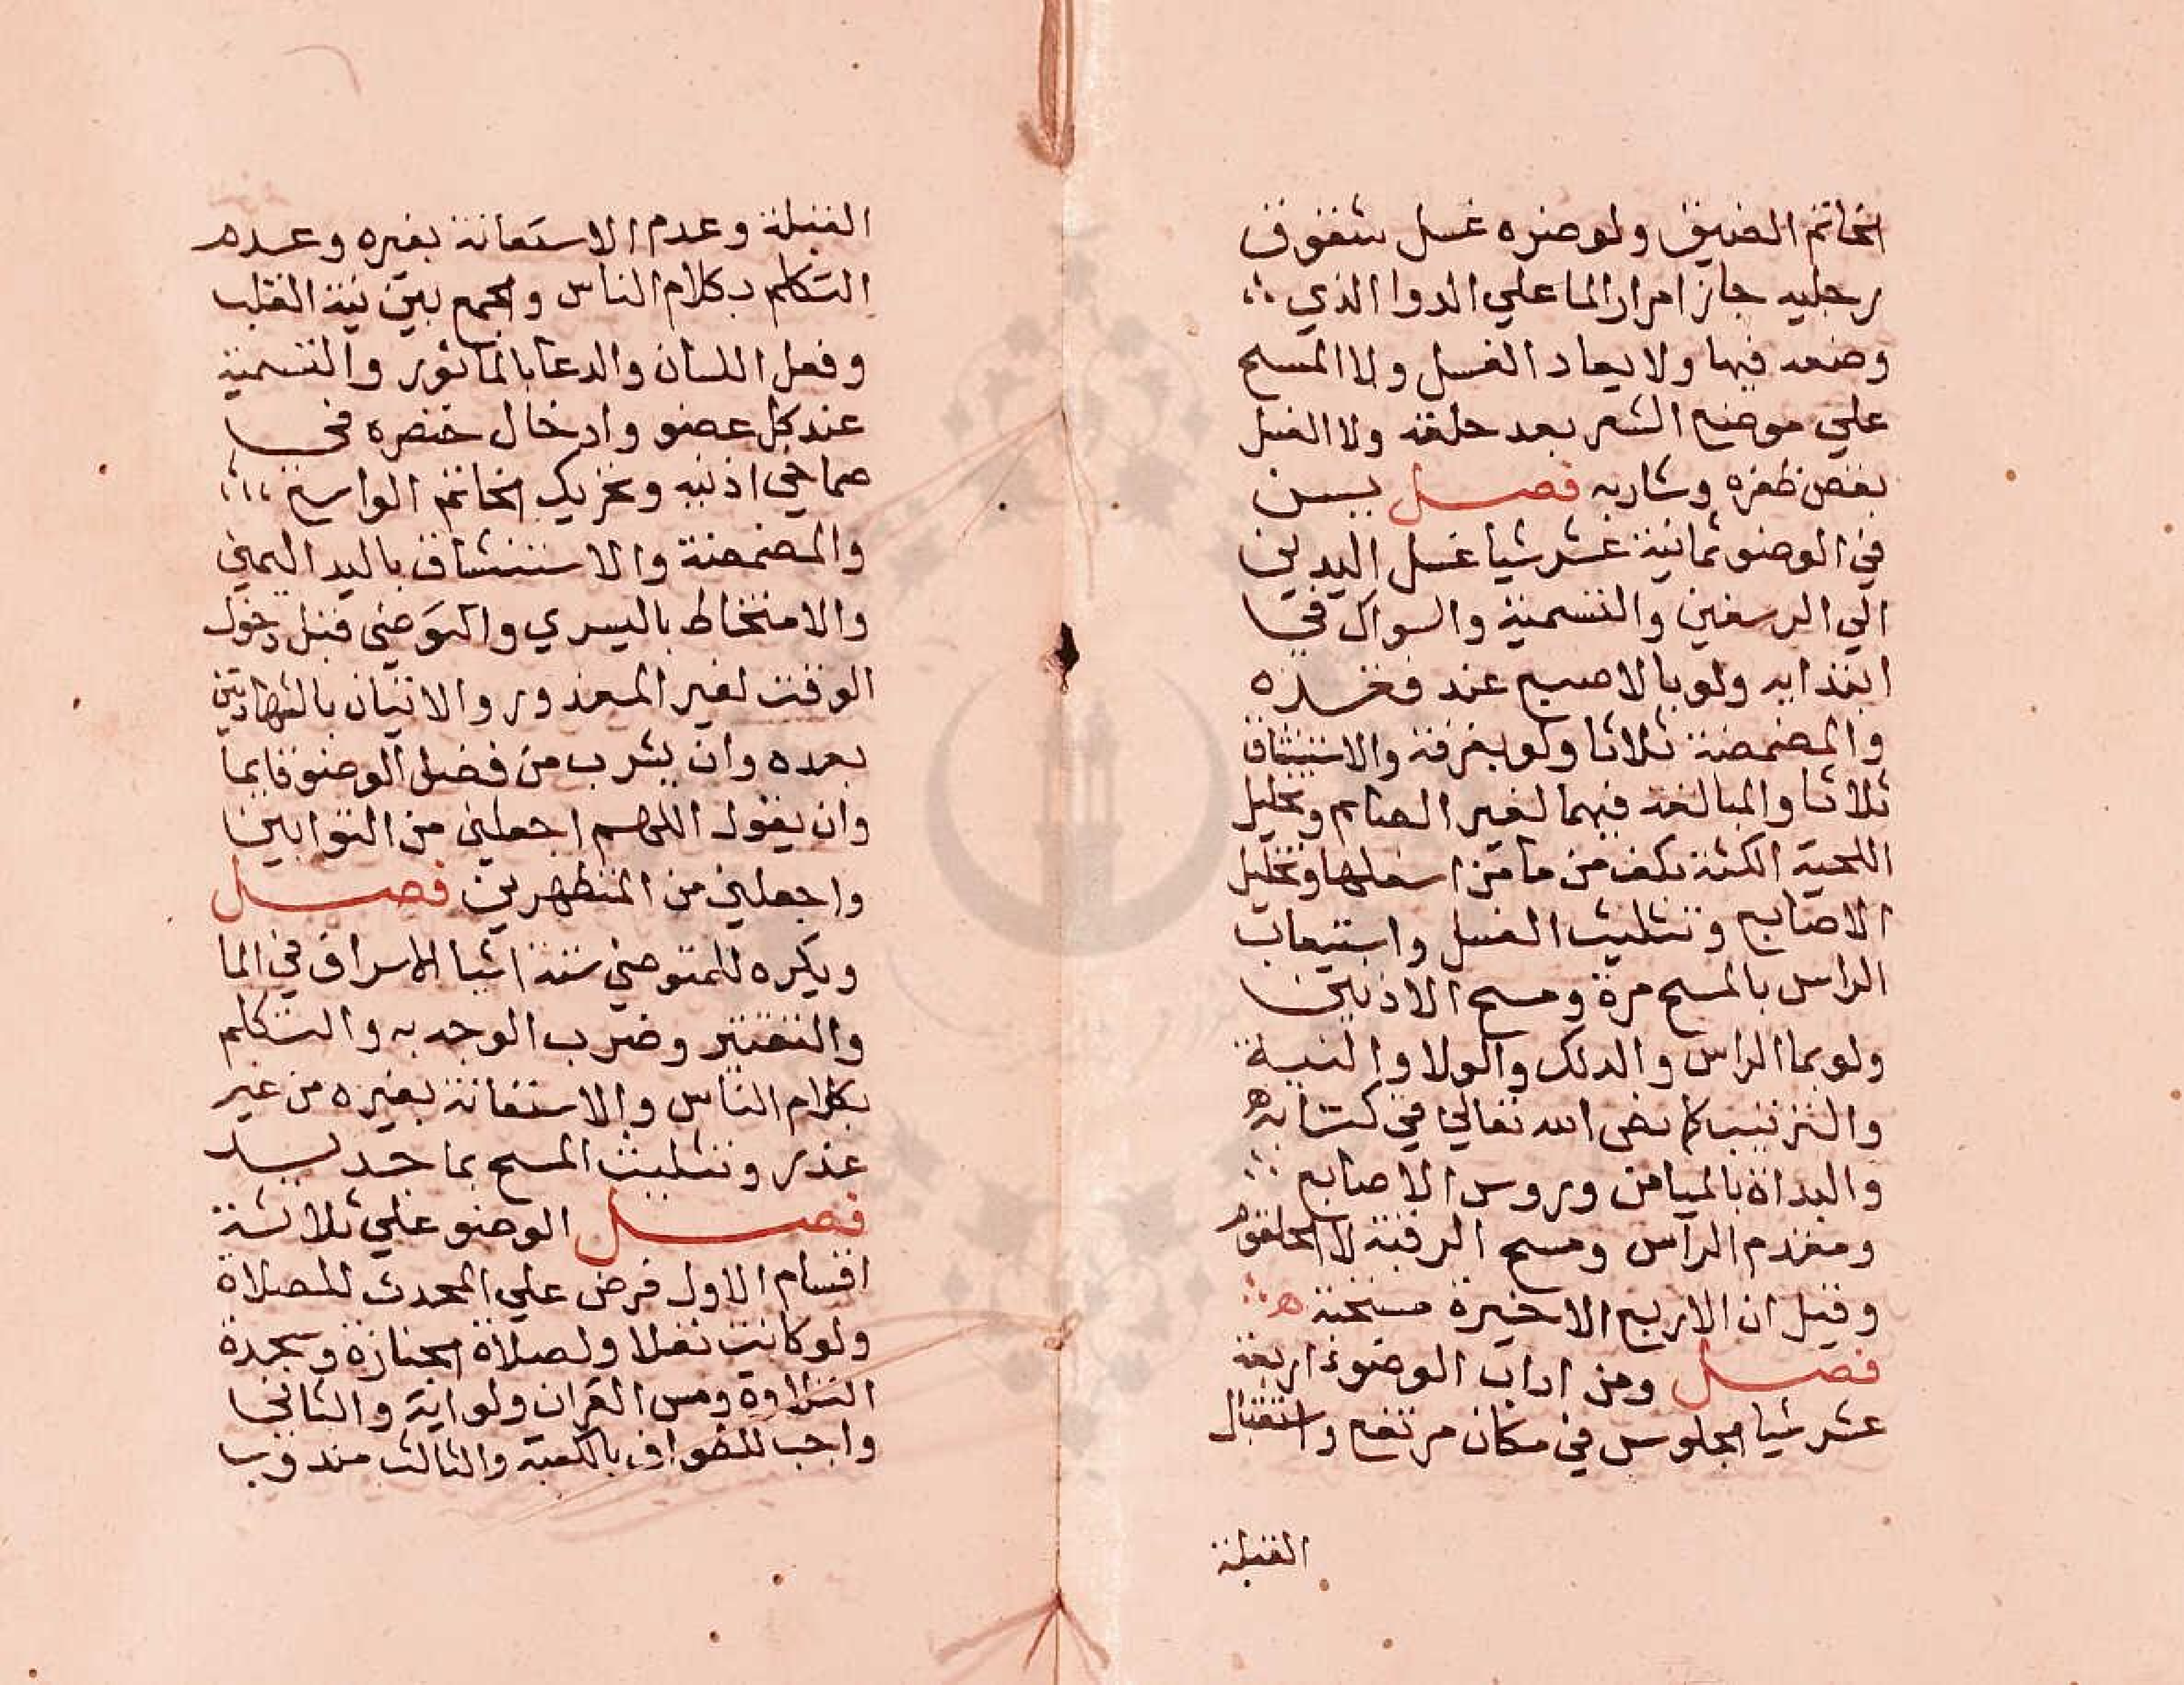 الخاتم الضيق ولو ضره غسل شقوق
رجليه جاز امرار الما علي الدوا الذي
وضعه فيها ولا يعاد الغسل ولا المسح
علي موضع الشعر بعد حلقه ولا الغسل
بقص ظفره وشاربه فصل يسن
في الوضو ثمانية عشر شيا غسل اليدين
الي الرسغين والتسمية والسواك في
ابتدايه ولو بالاصبع عند فقده
والمضمضة ثلاثا ولو بغرفة والاستنشاق
ثلاثا والمبالغة فيهما لغير الصايم وتخليل
اللحية الكثة بكف من ما من اسفلها وتخليل
الاصابع وتثليث الغسل واستيعاب
الراس بالمسح مرة ومسح الاذنين
ولو بما الراس والدلك والولا والنية
والترتيب كما نص الله تعالي في كتابه
والبداة بالميامن وروس الاصابع
ومقدم الراس ومسح الرقبة لا الحلقوم
وقيل ان الاربع الاخيرة مستحبة
فصل ومن اداب الوضوء اربعة
عشر شيا الجلوس في مكان مرتفع واستقبال
القبلة
القبلة وعدم الاستعانة بغيره وعدم
التكلم بكلام الناس والجمع بين نية القلب
وفعل اللسان والدعا بالماثور والتسمية
عند كل عضو وادخال خنصره في
صماخي اذنيه وتحريك الخاتم الواسع
والمضمضة والاستنشاق باليد اليمني
والامتخاط باليسري والتوضي قبل دخول
الوقت لغير المعذور والاتيان بالشهادتين
بعده وان يشرب من فضل الوضو قايما
وان يقول اللهم اجعلني من التوابين
واجعلني من المتطهرين فصل
ويكره للمتوضي ستة اشيا الاسراف في الما
والتقتير وضرب الوجه به والتكلم
بكلام الناس والاستعانة بغيره من غير
عذر وتثليث المسح بما جديد
فصل الوضو علي ثلاثة
اقسام الاول فرض علي المحدث للصلاة
ولو كانت نفلا ولصلاة الجنازة وسجدة
التلاوة ومس القران ولو اية والثاني
واجب للطواف بالكعبة والثالث مندوب